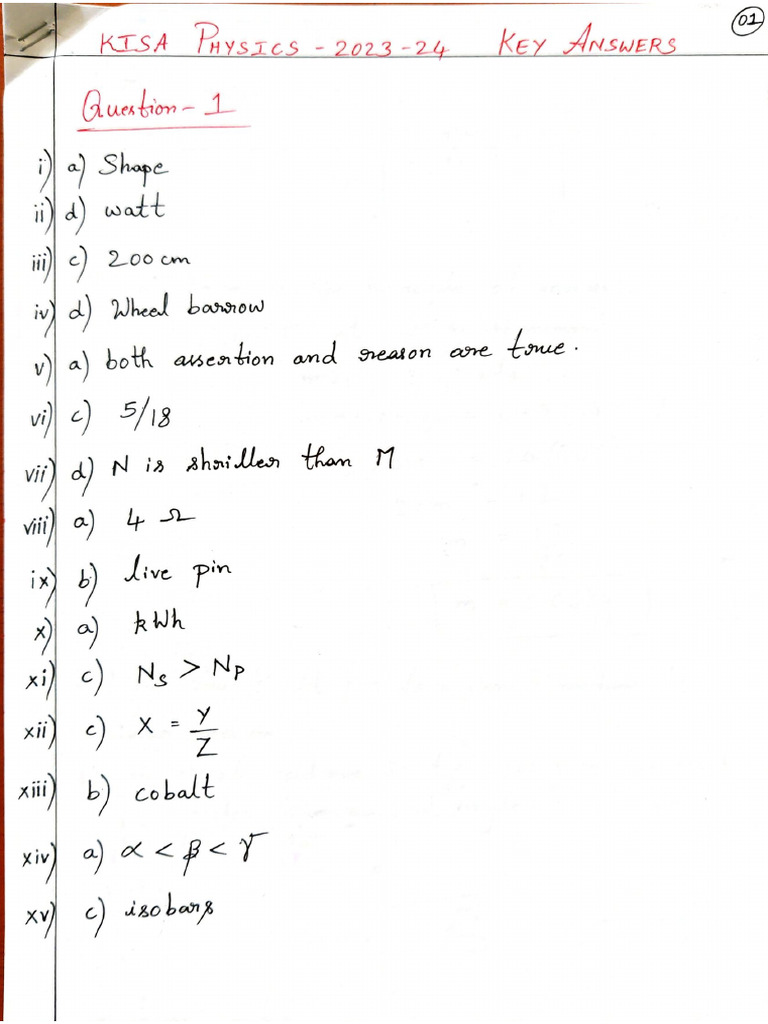 01
KISA PHYSICS - 2023-24 KEY ANSWERS
Question - 1
i) a) Shape
ii) d) watt
iii) c) 200 cm
iv) d) Wheel barrow
v) a) both assertion and reason are true.
vi) c) 5/18
vii) d) N is shriller than M
viii) a) 4 Ω
ix) b) live pin
x) a) kWh
xi) c) Ns > Np
xii) c) X = Y/Z
xiii) b) cobalt
xiv) a) α < β < γ
xv) c) isobars